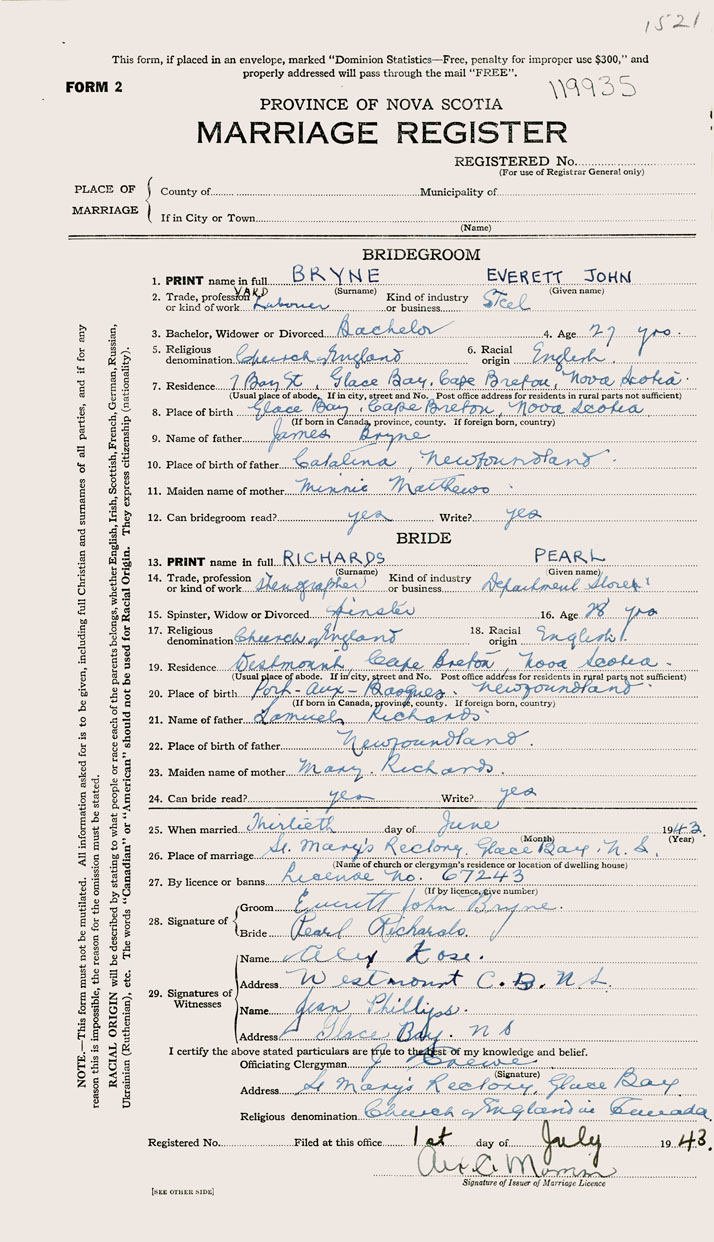 1521
This form, if placed in an envelope, marked "Dominion Statistics—Free, penalty for improper use $300," and
properly addressed will pass through the mail "FREE".
FORM 2
119935
PROVINCE OF NOVA SCOTIA
MARRIAGE REGISTER
REGISTERED No.
(For use of Registrar General only)
PLACE OF MARRIAGE
County of Municipality of
If in City or Town
(Name)
BRIDEGROOM
1. PRINT name in full BRYNE EVERETT JOHN
(Surname) (Given name)
2. Trade, profession or kind of work YARD Labourer Kind of industry or business Steel
3. Bachelor, Widower or Divorced Bachelor 4. Age 27 yrs.
5. Religious denomination Church of England 6. Racial origin English.
7. Residence 7 Bay St, Glace Bay, Cape Breton, Nova Scotia.
(Usual place of abode. If in city, street and No. Post office address for residents in rural parts not sufficient)
8. Place of birth Glace Bay, Cape Breton, Nova Scotia
(If born in Canada, province, county. If foreign born, country)
9. Name of father James Bryne
10. Place of birth of father Catalina, Newfoundland.
11. Maiden name of mother Minnie Matthews
12. Can bridegroom read? yes Write? yes
BRIDE
13. PRINT name in full RICHARDS PEARL
(Surname) (Given name)
14. Trade, profession or kind of work Stenographer Kind of industry or business Department Store
15. Spinster, Widow or Divorced Spinster 16. Age 28 yrs
17. Religious denomination Church of England 18. Racial origin English.
19. Residence Westmount, Cape Breton, Nova Scotia.
(Usual place of abode. If in city, street and No. Post office address for residents in rural parts not sufficient)
20. Place of birth Port-Aux-Basques. Newfoundland.
(If born in Canada, province, county. If foreign born, country)
21. Name of father Samuel Richards
22. Place of birth of father Newfoundland.
23. Maiden name of mother Mary. Richards.
24. Can bride read? yes Write? yes
25. When married Thirtieth day of June 1943.
(Month) (Year)
26. Place of marriage St. Mary's Rectory, Glace Bay. N.S.
(Name of church or clergyman's residence or location of dwelling house)
27. By licence or banns License No. 67243
(If by licence, give number)
28. Signature of
Groom Everett John Bryne.
Bride Pearl Richards.
29. Signatures of Witnesses
Name Alex Rose.
Address Westmount C.B. N.S.
Name Jean Phillips.
Address Glace Bay. NS
I certify the above stated particulars are true to the best of my knowledge and belief.
Officiating Clergyman
(Signature)
Address St Mary's Rectory, Glace Bay
Religious denomination Church of England in Canada
Registered No. Filed at this office 1st day of July 1943.
Signature of Issuer of Marriage Licence
[SEE OTHER SIDE]
NOTE.—This form must not be mutilated. All information asked for is to be given, including full Christian and surnames of all parties, and if for any
reason this is impossible, the reason for the omission must be stated.
RACIAL ORIGIN will be described by stating to what people or race each of the parents belongs, whether English, Irish, Scottish, French, German, Russian,
Ukrainian (Ruthenian), etc. The words "Canadian" or "American" should not be used for Racial Origin. They express citizenship (nationality).